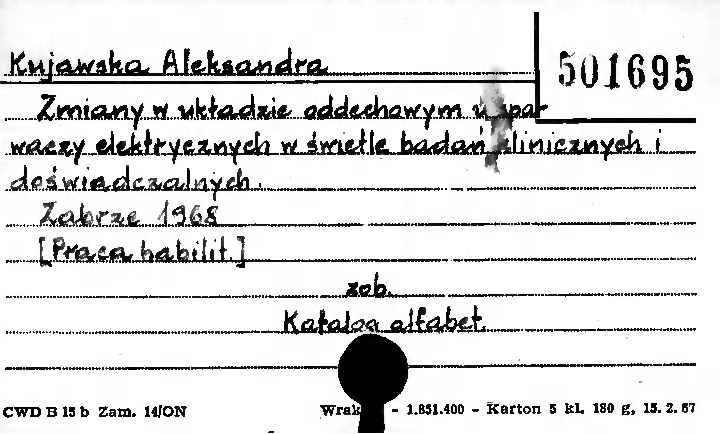 Kujawska Aleksandra
501695
Zmiany w układzie oddechowym u spa-
waczy elektrycznych w świetle badań klinicznych i
doświadczalnych.
Zabrze 1968
[Praca habilit.]
zob.
Katalog alfabet.
CWD B 15 b Zam. 14/ON - 1.851.400 - Karton 5 kl. 180 g, 15. 2. 67